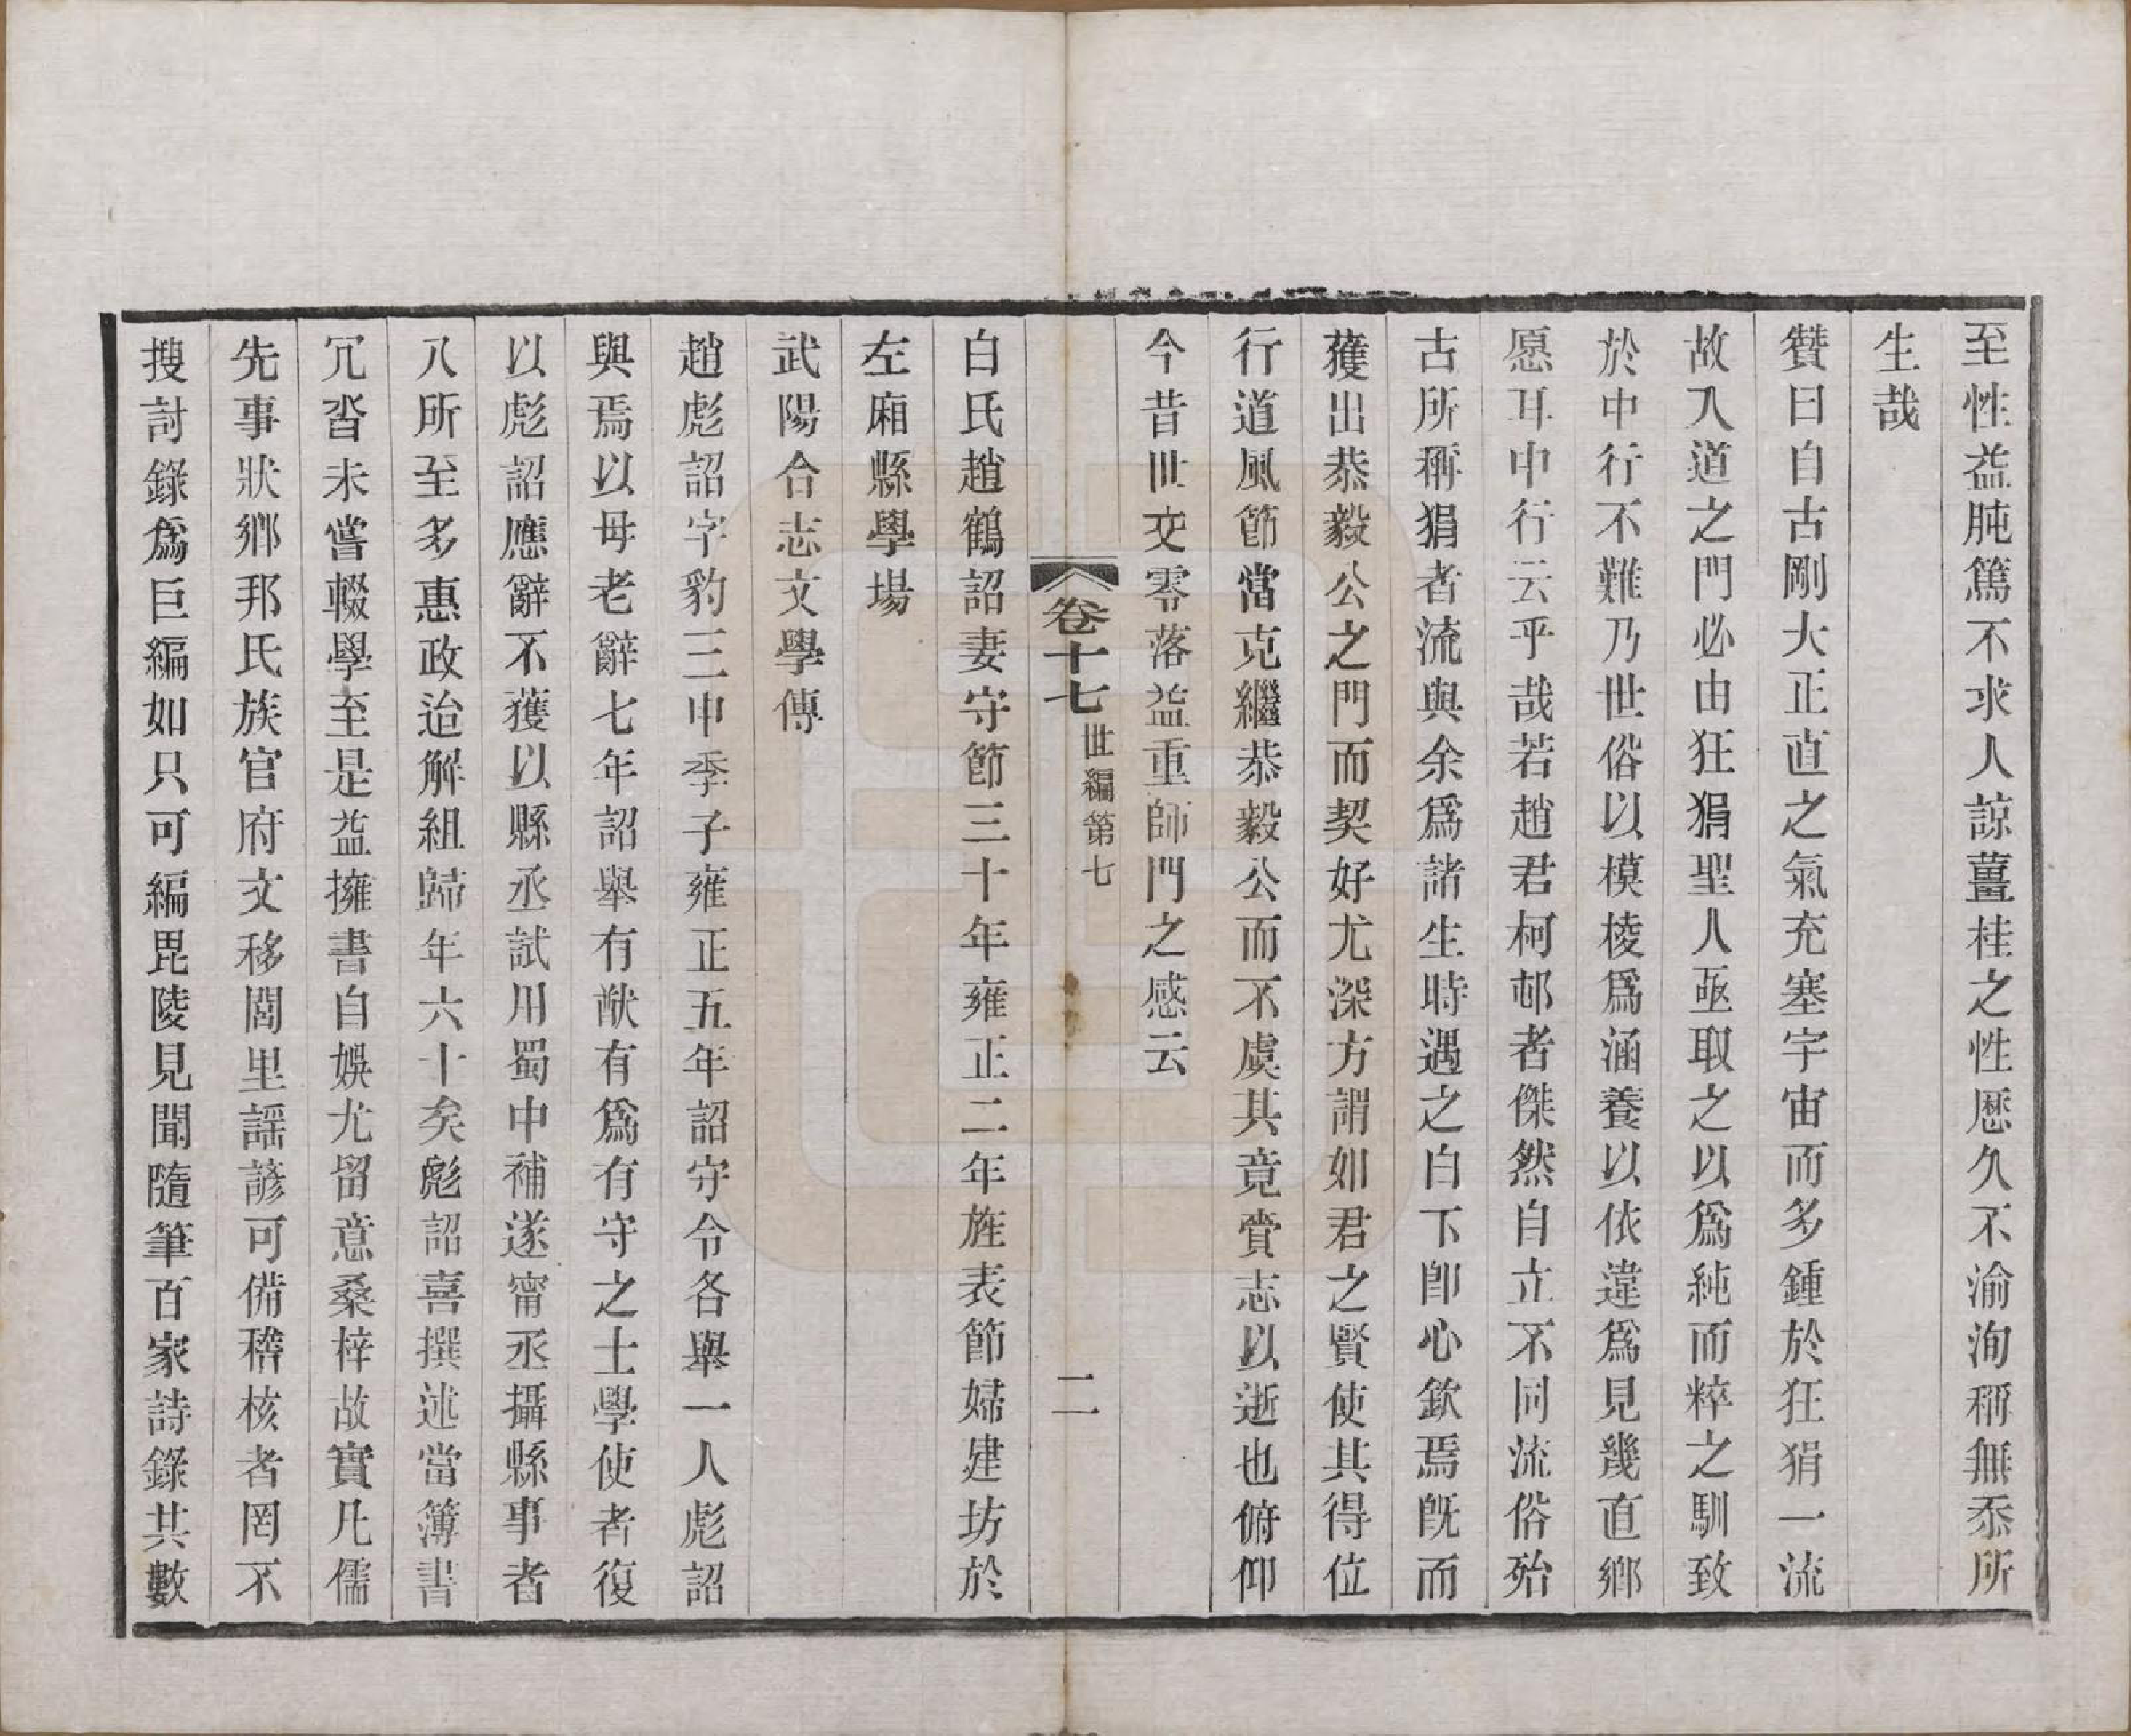 至性益肫篤不求人諒薑桂之性歷久不渝洵稱無忝所
生哉
贊曰自古剛大正直之氣充塞宇宙而多鍾於狂狷一流
故入道之門必由狂狷聖人亟取之以爲純而粹之馴致
於中行不難乃世俗以模棱爲涵養以依違爲見幾直鄉
愿耳中行云乎哉若趙君柯邨者傑然自立不同流俗殆
古所稱狷者流與余爲諸生時遇之白下卽心欽焉旣而
獲出恭毅公之門而契好尤深方謂如君之賢使其得位
行道風節當克繼恭毅公而不虞其竟賫志以逝也俯仰
今昔世交零落益重師門之感云
卷十七 世編第七 二
白氏趙鶴詔妻守節三十年雍正二年旌表節婦建坊於
左廂縣學場
武陽合志文學傳
趙彪詔字豹三申季子雍正五年詔守令各舉一人彪詔
與焉以母老辭七年詔舉有猷有爲有守之士學使者復
以彪詔應辭不獲以縣丞試用蜀中補遂甯丞攝縣事者
八所至多惠政迨解組歸年六十矣彪詔喜撰述當簿書
冗沓未嘗輟學至是益擁書自娛尤留意桑梓故實凡儒
先事狀鄉邦氏族官府文移閭里謡諺可備稽核者罔不
搜討錄爲巨編如只可編毘陵見聞隨筆百家詩錄共數